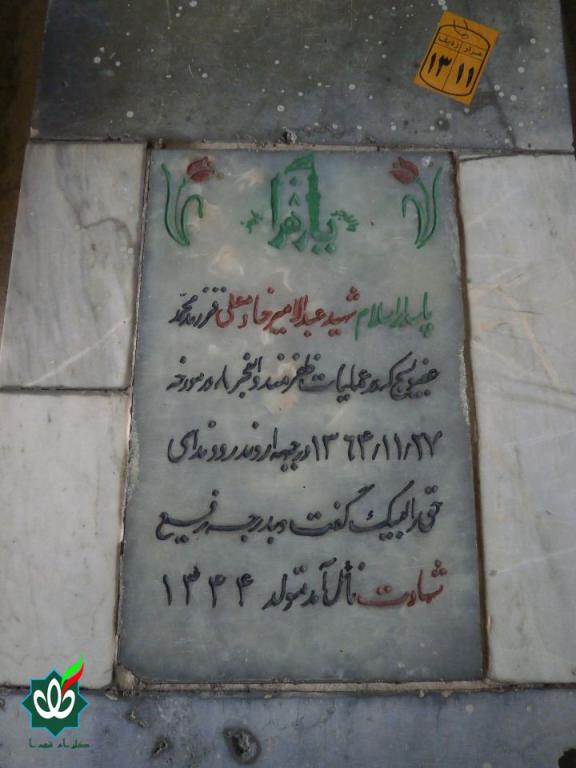 ۱۱
مزار ردیف
۱۳ ۱۱
یا زهرا
پاسدار اسلام شهید عبدالامیر خادمعلی فرزند محمد
عضو بسیج که در عملیات ظفرمند والفجر ۸ در مورخه
۱۳۶۴/۱۱/۲۷ در جبهه اروندرود ندای
حق را لبیک گفت و بدرجه رفیع
شهادت نائل آمد تولد ۱۳۴۴